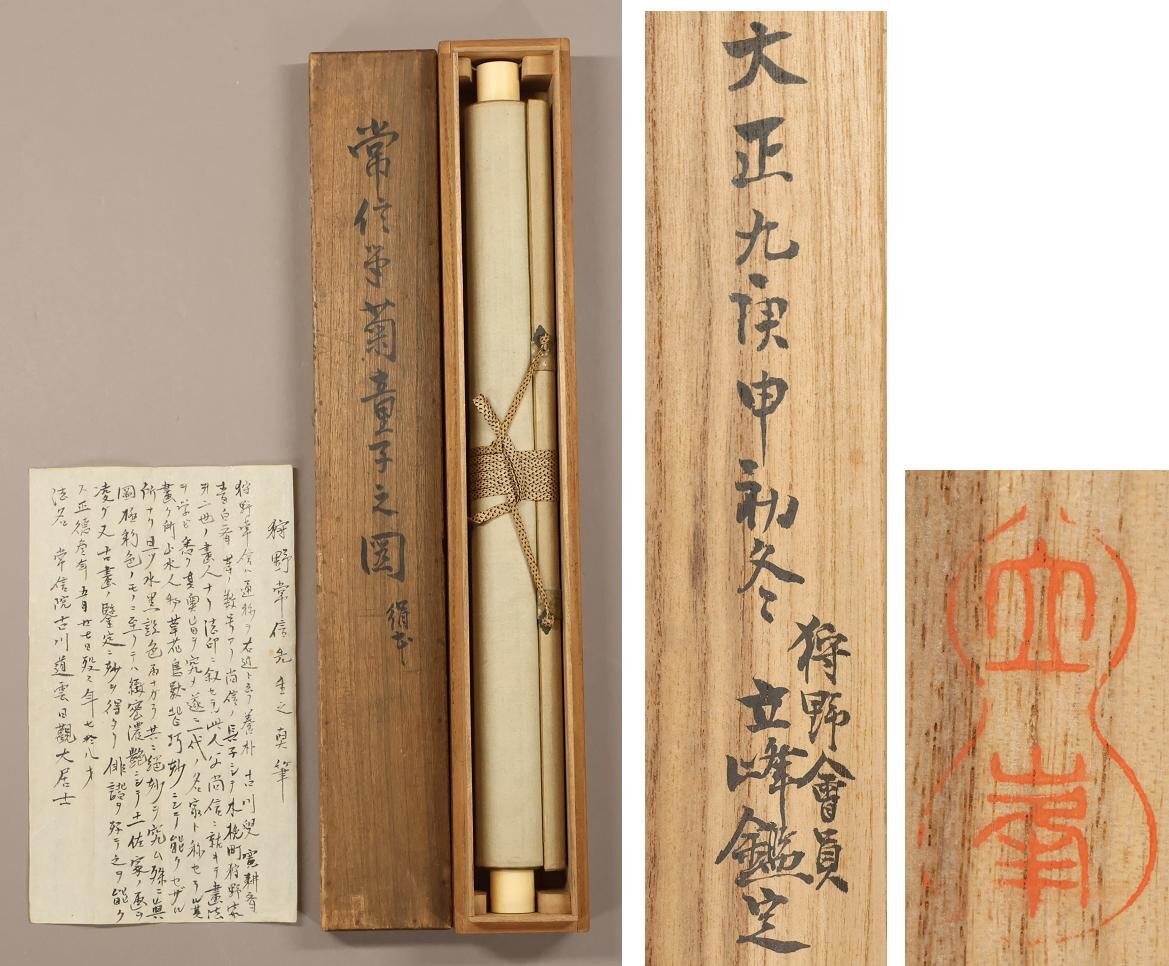 常信筆菊童子之図
絹本
狩野常信先生之真筆
狩野常信ハ通称ヲ右近ト云フ養朴古川叟寛耕斎
青白斎等ノ数号アリ尚信ノ長子ニシテ木挽町狩野家
第二世ノ画人ナリ法印ニ叙セラル此人父尚信ニ就キテ画法
ヲ学ビ悉ク其奥旨ヲ究メ遂ニ一代ノ名家ト称セラル其
画ク所山水人物草花鳥獣皆巧妙ニシテ能クセザル
所ナリ且ツ水墨設色両ナガラ其ニ絶妙ヲ究ム殊ニ其
図極彩色ノモノニ至リテハ緻密濃艶ニシテ土佐家ノ画ヲ
凌グ又古画ノ鑒定ニ妙ヲ得タリ俳諧ヲ好テ之ヲ能ク
ス正徳参年五月廿七日殁ス年七拾八才
法名 常信院古川道雲日観大居士
大正九庚申初冬
狩野會員
立峰鑑定
立峯